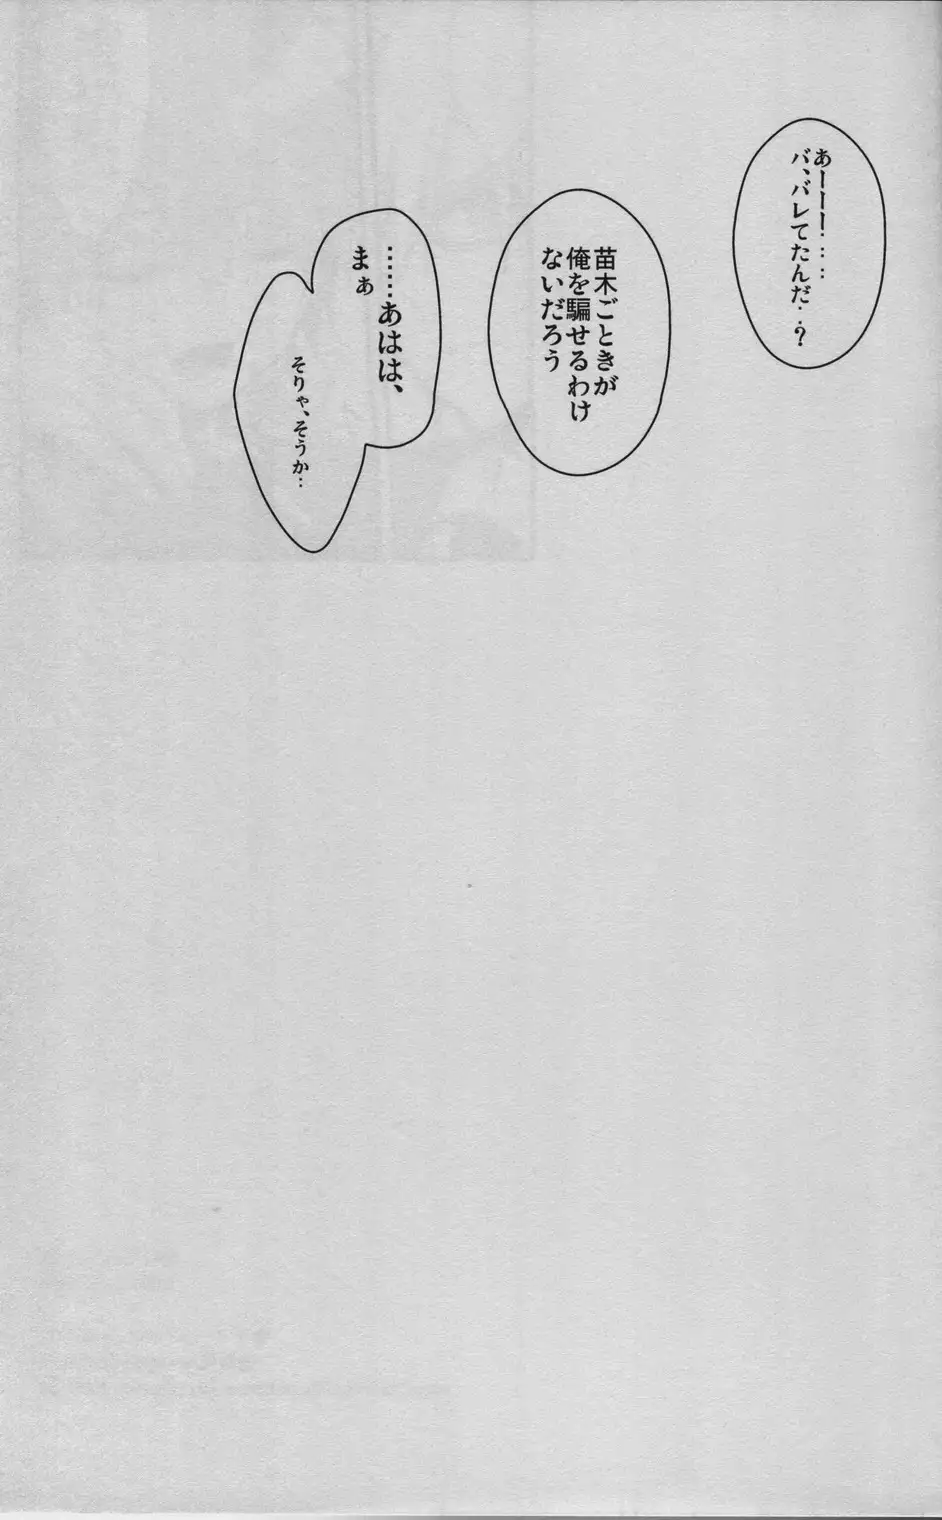 あーーー………
バ、バレてたんだ…?
苗木ごときが
俺を騙せるわけ
ないだろう
……あはは、
まぁ
そりゃ、そうか…